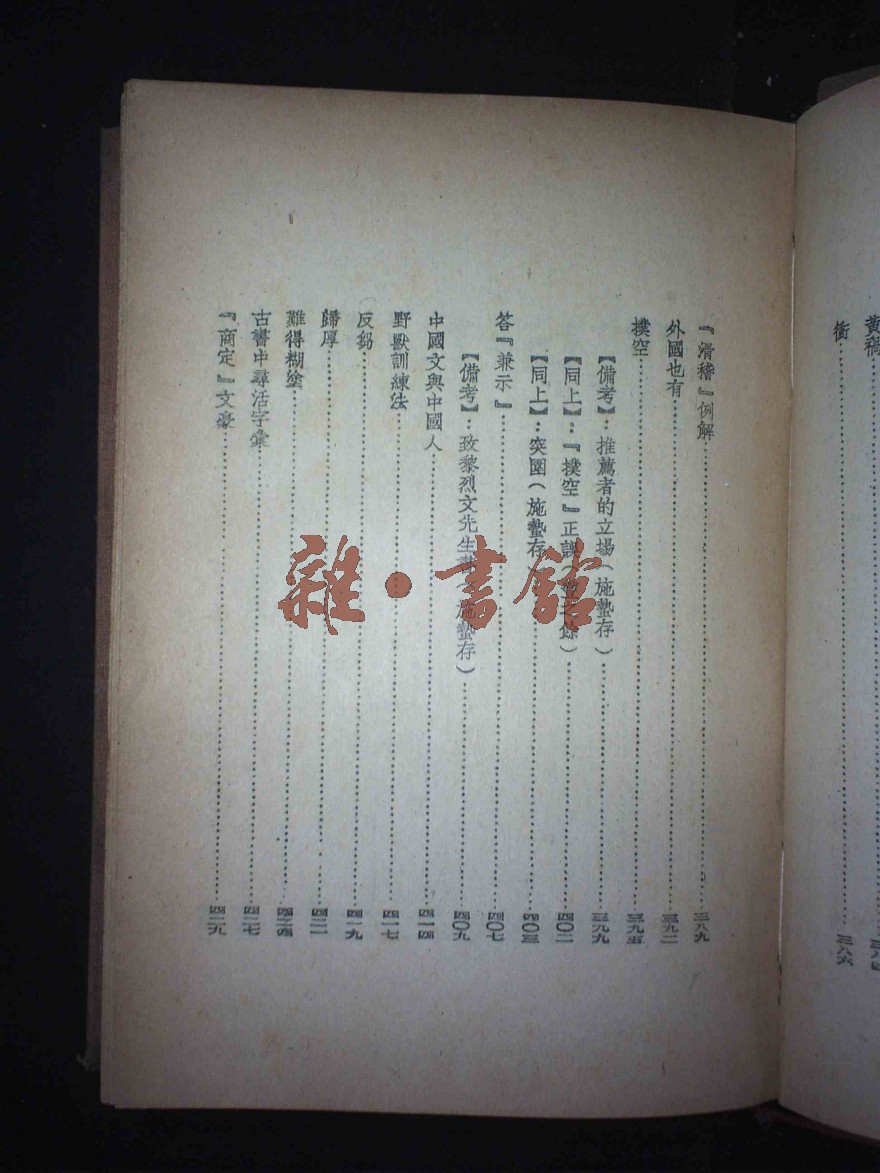 黃禍
衝……三八六
『滑稽』例解……三八九
外國也有……三九二
撲空……三九五
【備考】：推薦者的立場（施蟄存）……三九九
【同上】：『撲空』正誤（豐之餘）……四〇二
【同上】：突圍（施蟄存）……四〇三
答『兼示』……四〇七
【備考】：致黎烈文先生書（施蟄存）……四〇九
中國文與中國人……四一四
野獸訓練法……四一七
反芻……四一九
歸厚……四二一
難得糊塗……四二四
古書中尋活字彙……四二七
『商定』文豪……四二九
雜·書館